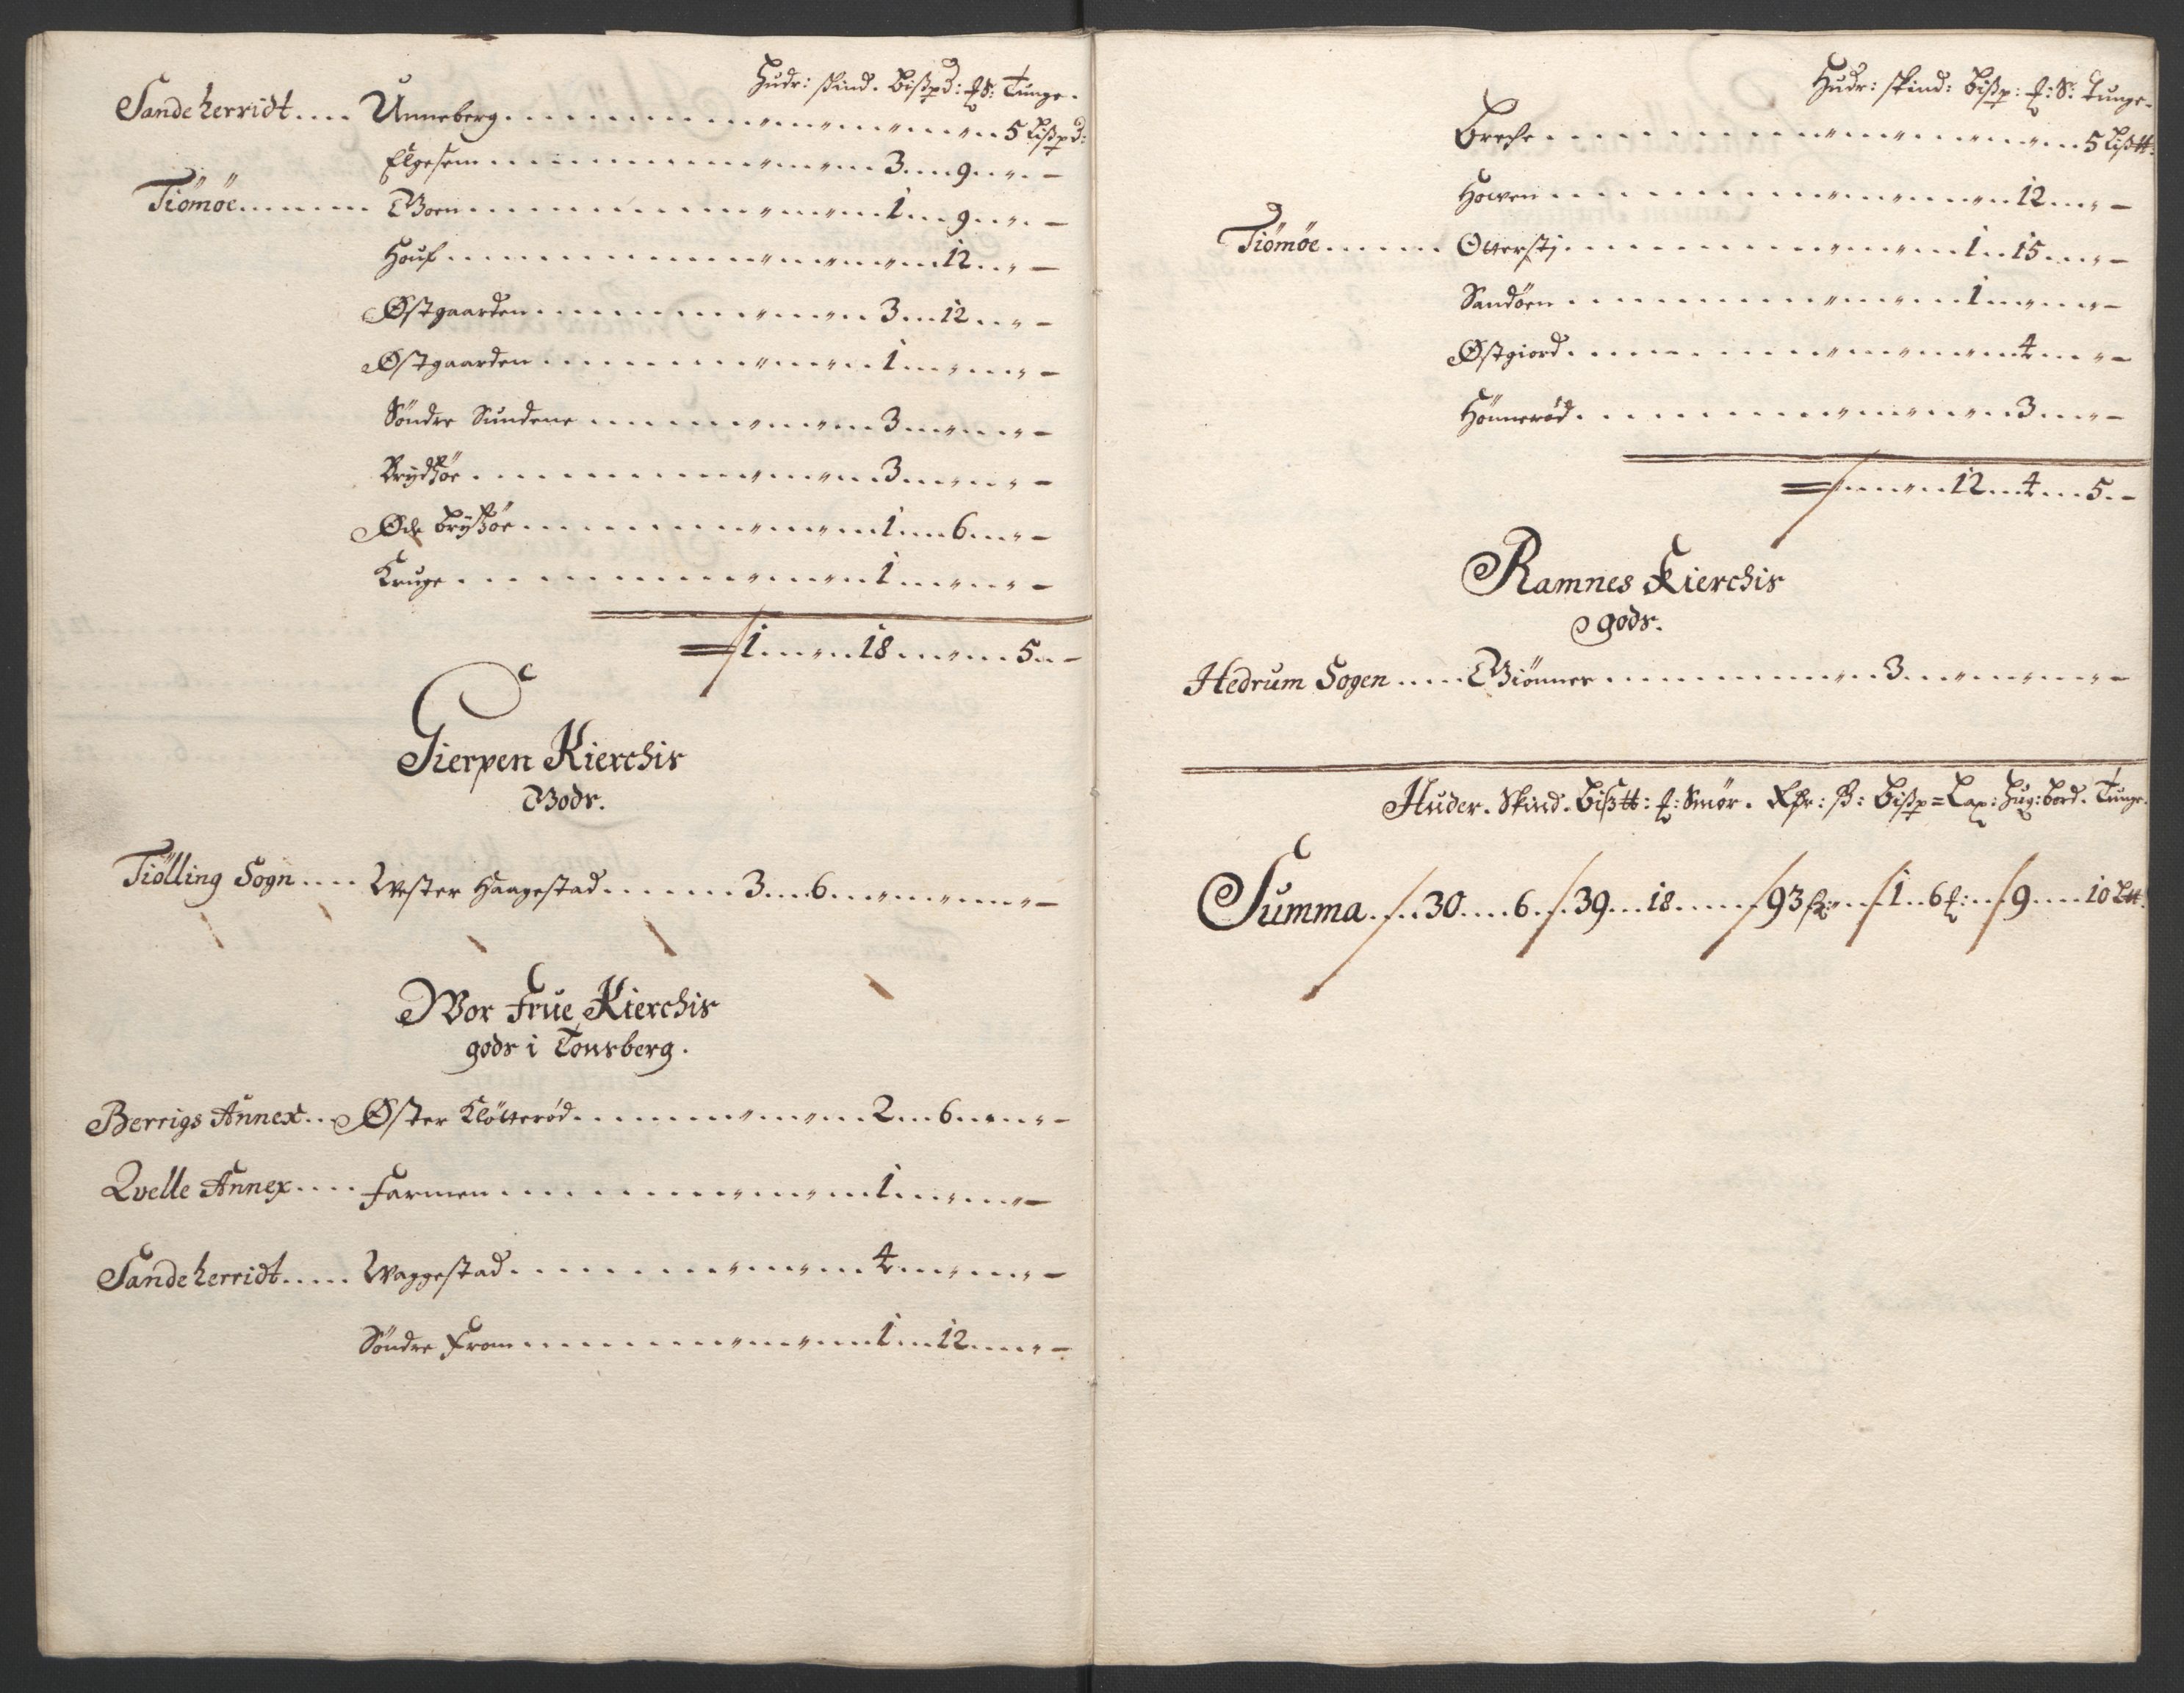 Hudr: skind. Bißpd: ℔ S: Tunge.
Sandeherridt.... Unneberg ........ 5 Lißpd:
Elgesem ........ 3 .... 9 .... –
Tiömöe ........ Moen ........ 1 .... 9 .... –
Houf ........ 12 .... –
Østgaarden ........ 3 .... 12 .... –
Østgaarden ........ 1 .... –
Söndre Sundene ........ 3 .... –
Brydtzöe ........ 3 .... –
Øde Brytzöe ........ 1 .... 6 .... –
Kruge ........ 1 .... –
1 .... 18 .... 5 .. –
Gierpen Kierchis
Godz.
Tiölling Sogn .... Wester Haagestad ........ 3 .... 6 .... –
Wor Frue Kierchis
gods i Tonsberg.
Berrigs Annex ... Øster Klötterød ........ 2 .... 6 .... –
Qvelle Annex .... Farmen ........ 1 .... –
Sandeherridt ..... Waggestad ........ 4 .... –
Söndre From ........ 1 .... 12 .... –
Hudr: skind: Bißp: ℔: S: Tunge.
Breche ........ 5 Liß℔:
Howen ........ 12 .... –
Tiömöe ...... Otterstj ........ 1 .. 15 .... –
Sandöen ........ 1 .... –
Østgiord ........ 4 .... –
Hönnerød ........ 3 .... –
12 .... 4 .... 5 .. –
Ramnes Kierchis
gods.
Hedrum Sogen ..... Biönnes ........ 3 .... –
Huder. Skind. Biß℔: ℔: Smör. Rdr: ß: Bißp = Lax: Hug: bord. Tunge.
Summa .... 30 .... 6 ... 39 ... 18 ..... 93 ... 1 .. 6 ... 9 .... 10 L℔.